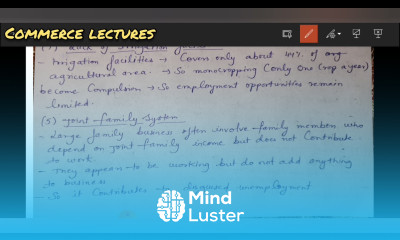 COMMERCE LECTURES
Lack of Irrigation
- Irrigation facilities → Covers only about 44% of any
agricultural area. → So monocropping (only One Crop a year)
become Compulsion → So employment opportunities remain
limited.
(5) Joint-family System
- Large family business often involve family members who
depend on joint-family income but does not Contribute
to work.
- They appear to be working but do not add anything
to business
- So it Contributes disguised unemployment
Mind
Luster